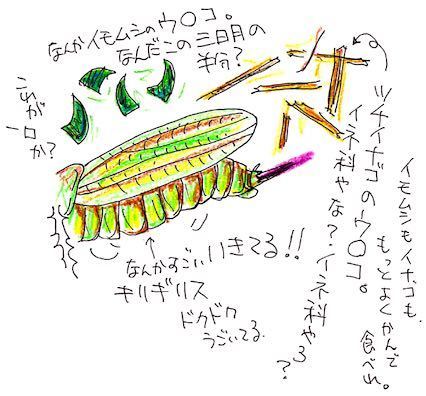 なんかイモムシのウ〇コ。
なんだこの三日月の
半分?
これが
一口
か?
ツチイナゴのウ〇コ。
イネ科やな?イネ科やろ?
イモムシもイナゴも、
もっとよくかんで
食べれ。
なんかすごいいきてる!!
キリギリス
ドクドク
うごいてる。